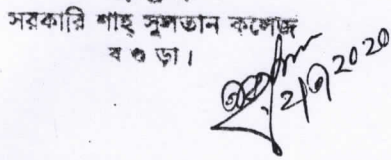 সরকারি শাহ্ সুলতান কলেজ
ব গু ড়া।
2020